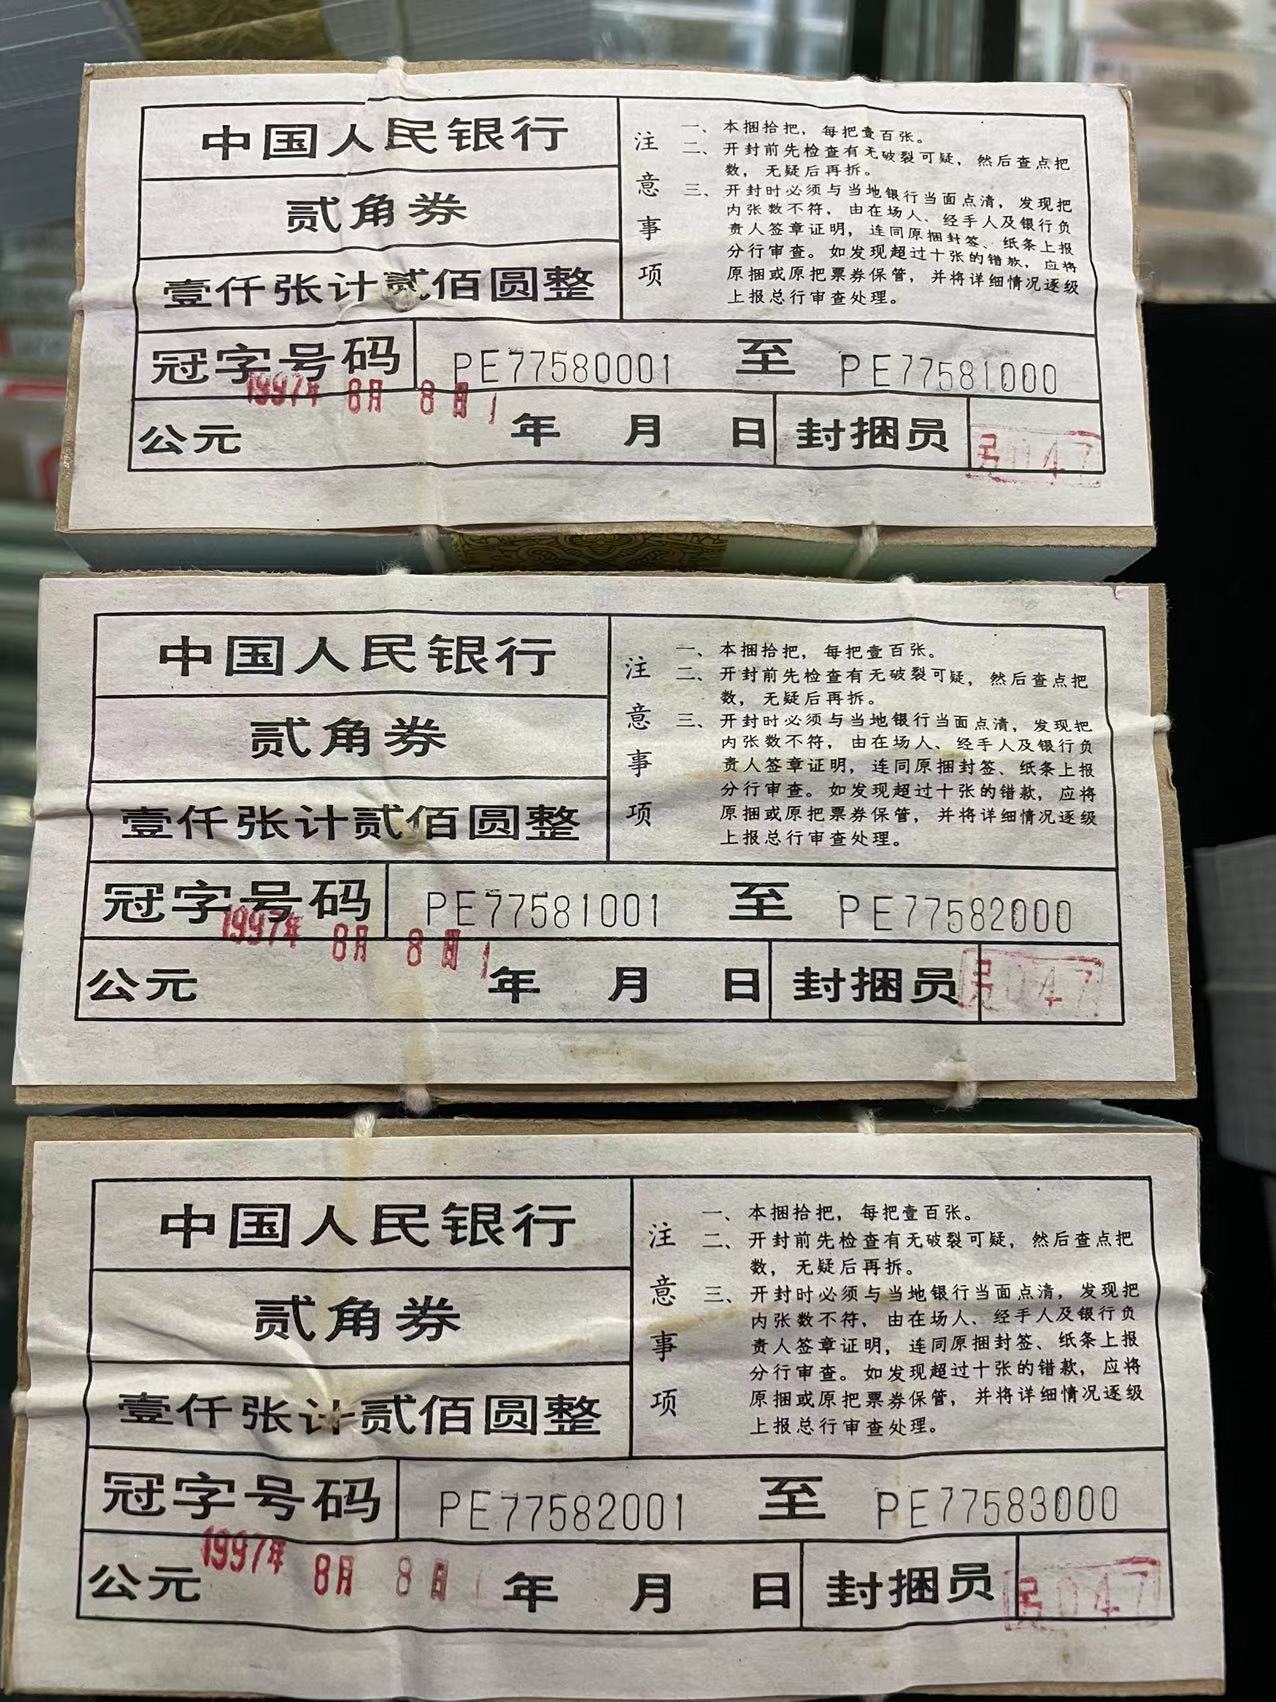 中国人民银行
贰角券
壹仟张计贰佰圆整
注意事项
一、本捆拾把，每把壹百张。
二、开封前先检查有无破裂可疑，然后查点把
数，无疑后再拆。
三、开封时必须与当地银行当面点清，发现把
内张数不符，由在场人、经手人及银行负
责人签章证明，连同原捆封签、纸条上报
分行审查。如发现超过十张的错款，应将
原捆或原把票券保管，并将详细情况逐级
上报总行审查处理。
冠字号码 PE77580001 至 PE77581000
1997年 8月 8日
公元 年 月 日 封捆员 047
中国人民银行
贰角券
壹仟张计贰佰圆整
注意事项
一、本捆拾把，每把壹百张。
二、开封前先检查有无破裂可疑，然后查点把
数，无疑后再拆。
三、开封时必须与当地银行当面点清，发现把
内张数不符，由在场人、经手人及银行负
责人签章证明，连同原捆封签、纸条上报
分行审查。如发现超过十张的错款，应将
原捆或原把票券保管，并将详细情况逐级
上报总行审查处理。
冠字号码 PE77581001 至 PE77582000
1997年 8月 8日
公元 年 月 日 封捆员 047
中国人民银行
贰角券
壹仟张计贰佰圆整
注意事项
一、本捆拾把，每把壹百张。
二、开封前先检查有无破裂可疑，然后查点把
数，无疑后再拆。
三、开封时必须与当地银行当面点清，发现把
内张数不符，由在场人、经手人及银行负
责人签章证明，连同原捆封签、纸条上报
分行审查。如发现超过十张的错款，应将
原捆或原把票券保管，并将详细情况逐级
上报总行审查处理。
冠字号码 PE77582001 至 PE77583000
1997年 8月 8日
公元 年 月 日 封捆员 047